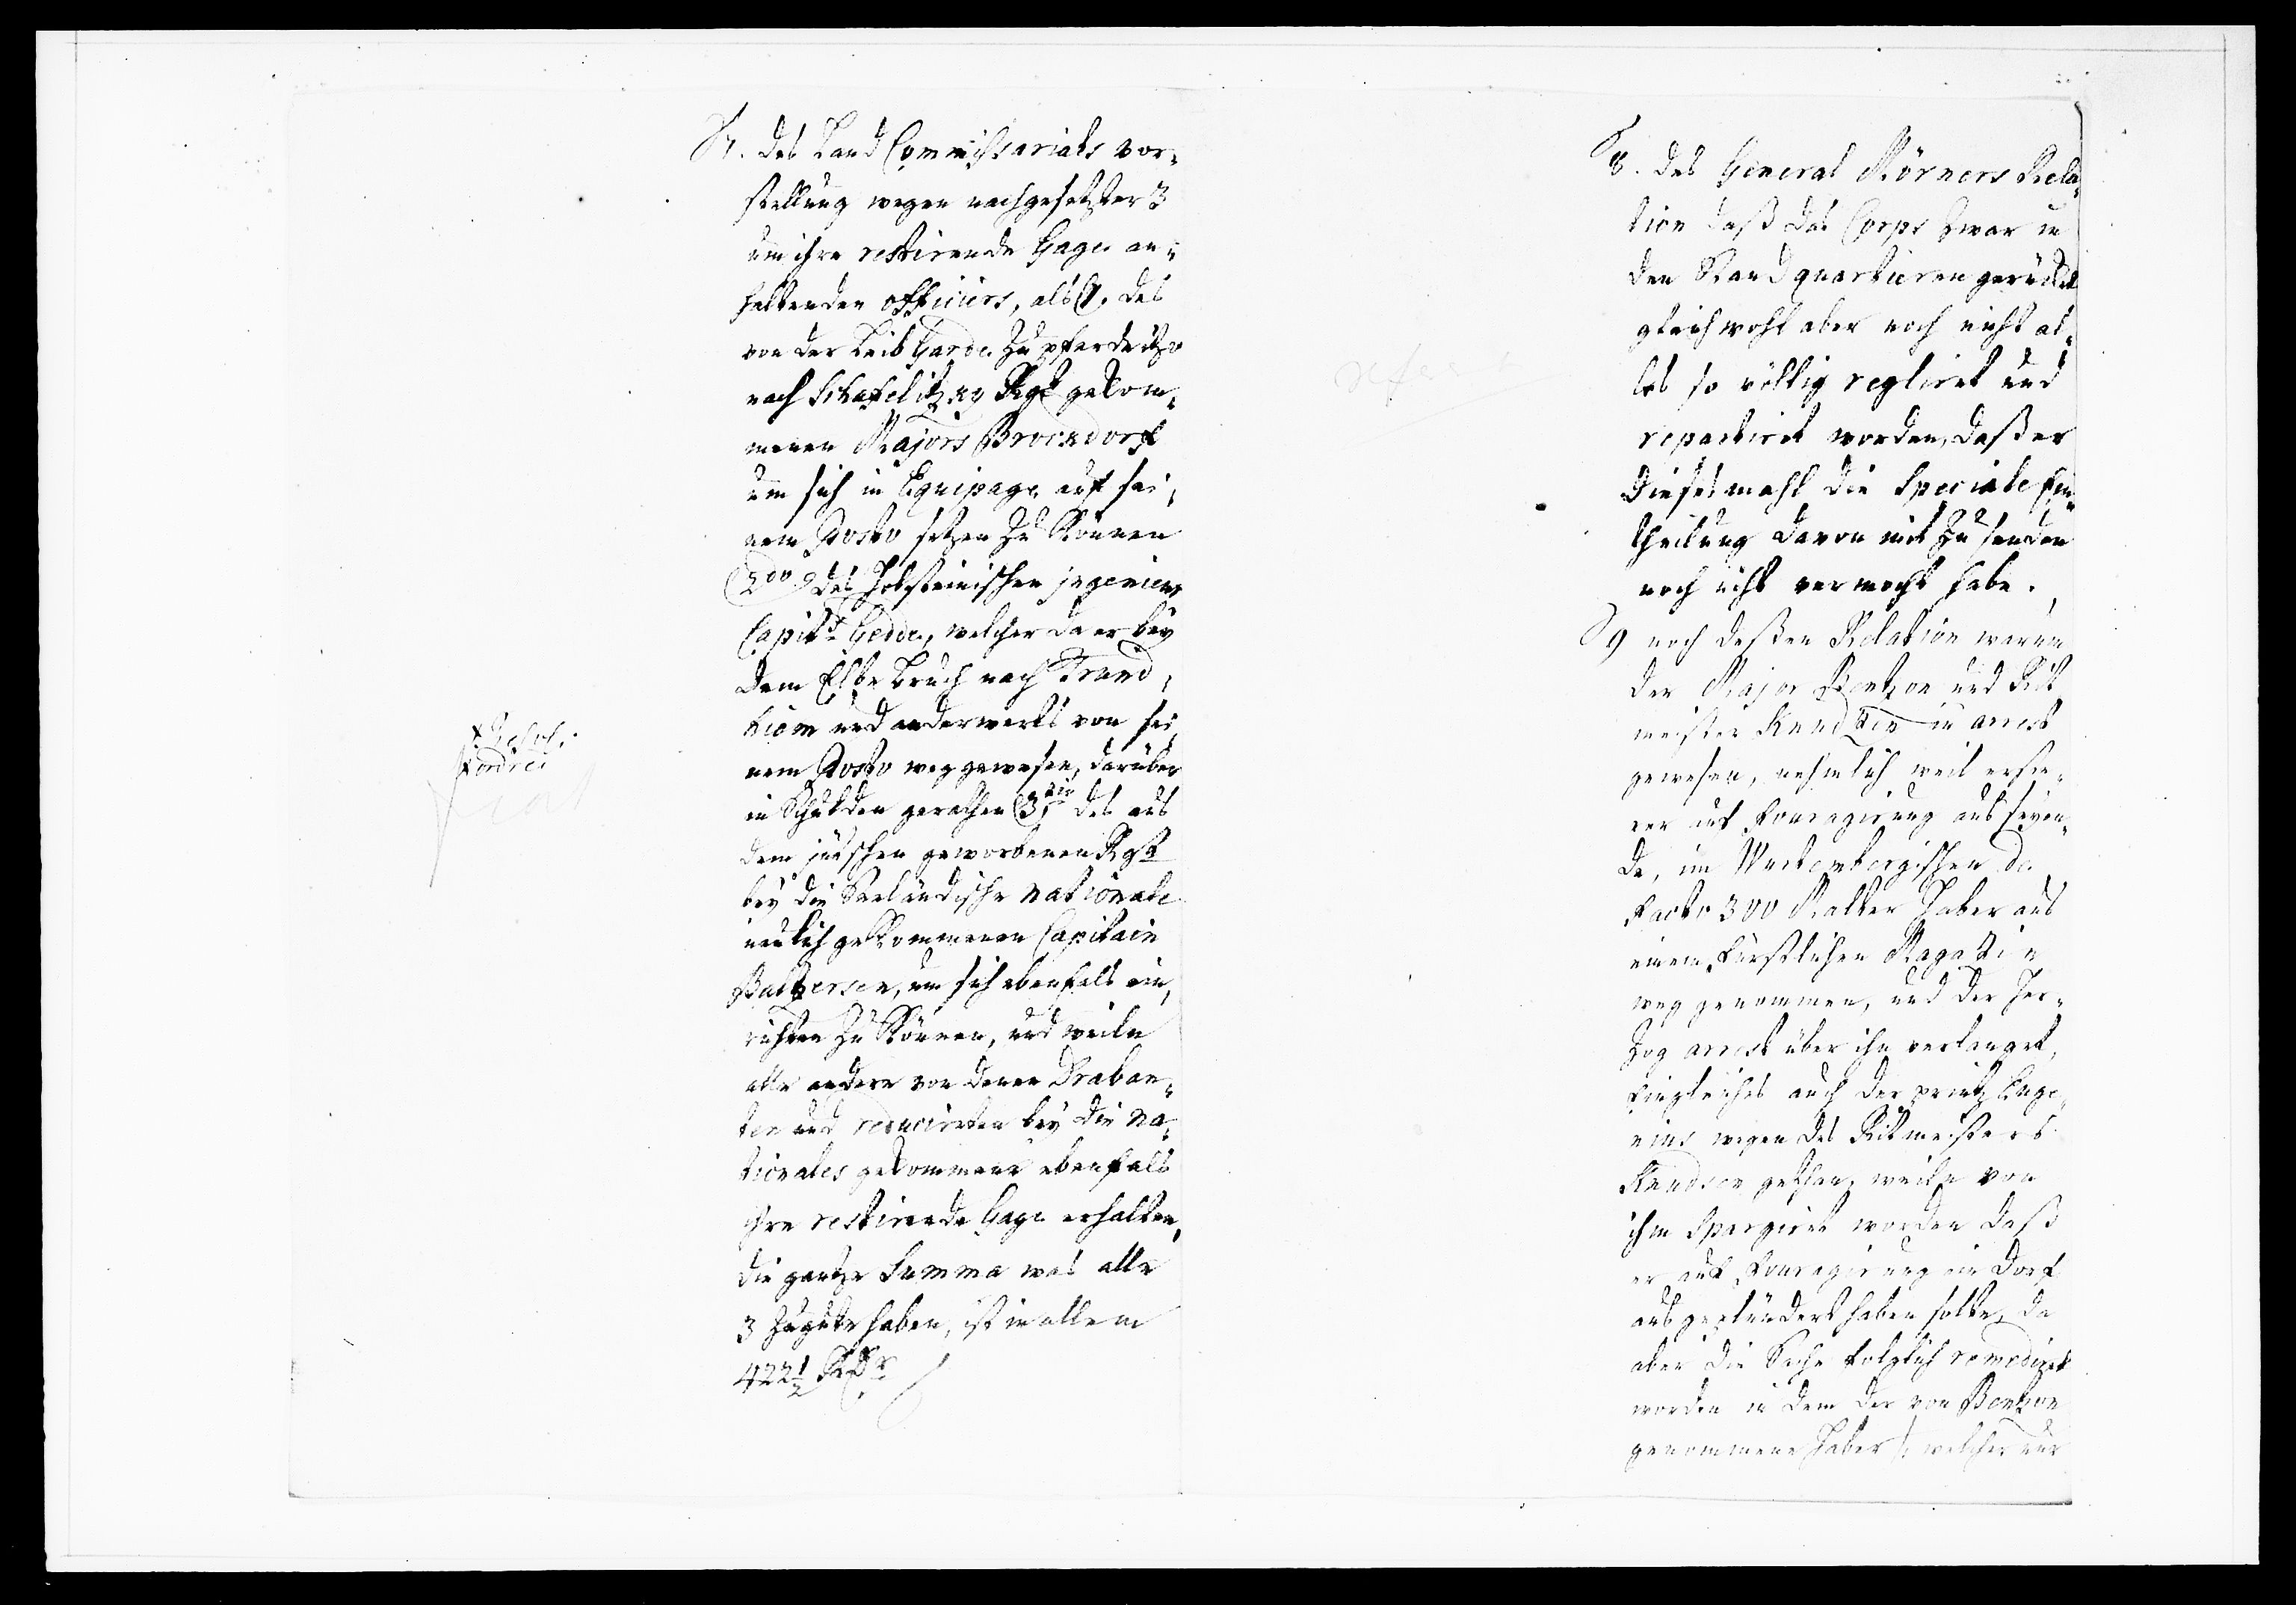 7. Des Land Commissariats vor-
stellung wegen nachgesetzter 3
um ihre restirende Gage an-
haltenden officiers, als 1. des
von der Leib Garde zu pferde itzo
nach Schafelitzky Rgt gekom-
menen Majors Brocxdorf
um sich in Equipage auf sei-
nem Posto setzen zu können
2do des Holsteinischen jngenieur
Capit: Gedde, welcher da er bey
dem Elbe bruch nach
und anderwerts von sei-
nem Posto weg gewesen, darüber
in Schulden gerathen 3tio des aus
dem jütschen geworbenen Rgt
bey die Seeländische nationale
neulich gekommenen Capitain
Baltzersen, um sich ebenfals ein-
richten zu können, und weiln
alle andere von denen Draban-
ten und reducirten bey die na-
tionales gekommene ebenfals
ihre restirende Gage erhalten,
die gantze Summa was alle
3 zugute haben, ist in allem
422½ Rdr
ordre
fiat
8. Des General Mörners Rela-
tion daß das Corps zwar in
den Standquartieren gerücket
gleichwohl aber noch nicht al-
les so völlig regliret und
repartiret worden, daß er
diesesmahl die Speciale Ein-
theilung davon mit zu senden
noch nicht vermocht habe.
9 noch deßen Relation warum
der Major Bentzon und Rit-
meister Knudsen in arrest
gewesen, nehmlich weil erste-
rer auf fouragirung aus seyen-
de, im Wurtembergischen de
facto 300 Malter Haber aus
einem fürstlichen Magazin
weg genommen, und der Her-
zog arrest über ihn verlanget,
eingleiches auch der printz Euge-
nius wegen des Ritmeisters
Knudsen gethan, weiln von
ihm spargiret worden daß
er auf fouragirung ein Dorf
aus geplündert haben solte, da
aber die Sache folglich remediret
worden in dem der von Bentzon
genommene Haber /: welcher nur